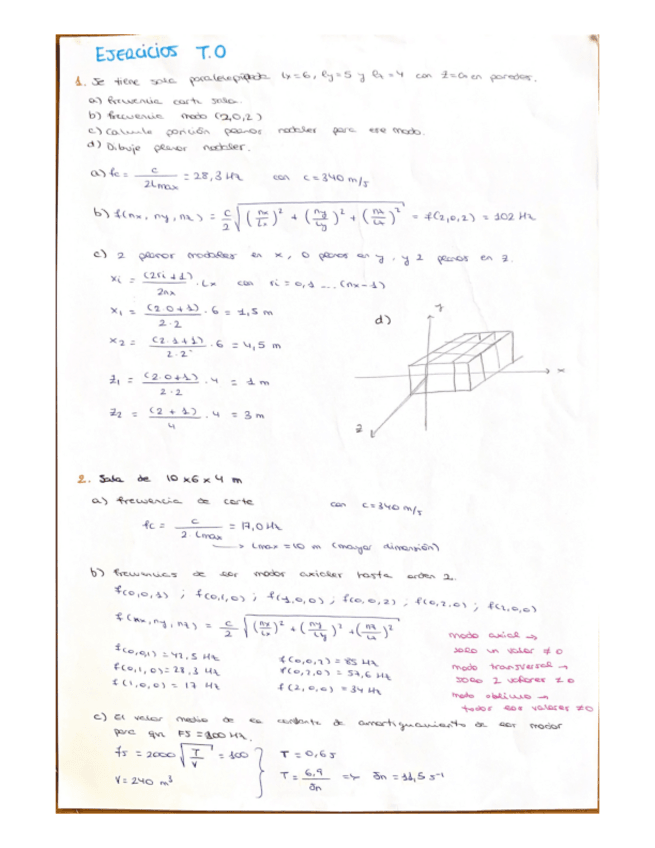 EJERCICIOS T.0
1. Se tiene sala paralelepípeda Lx=6, Ly=5 y Lz=4 con Z=∞ en paredes.
a) Frecuencia corte sala.
b) Frecuencia modo (2,0,2)
c) Calcule posición planos nodales para ese modo.
d) Dibuje planos nodales.
a) fc = c / 2Lmax = 28,3 Hz con c = 340 m/s
b) f(nx, ny, nz) = c/2 √((nx/Lx)² + (ny/Ly)² + (nz/Lz)²) = f(2,0,2) = 102 Hz
c) 2 planos nodales en x, 0 planos en y, y 2 planos en z.
xi = (2ri+1)/2nx · Lx con ri = 0,1 ... (nx-1)
x1 = (2·0+1)/2·2 · 6 = 1,5 m
x2 = (2·1+1)/2·2 · 6 = 4,5 m
z1 = (2·0+1)/2·2 · 4 = 1 m
z2 = (2+1)/4 · 4 = 3 m
d)
y
x
z
2. Sala de 10x6x4 m
a) Frecuencia de corte con c=340 m/s
fc = c / 2·Lmax = 17,0 Hz
→ Lmax = 10 m (mayor dimensión)
b) Frecuencias de los modos axiales hasta orden 2.
f(0,0,1) ; f(0,1,0) ; f(1,0,0) ; f(0,0,2) ; f(0,2,0) ; f(2,0,0)
f(nx, ny, nz) = c/2 √((nx/Lx)² + (ny/Ly)² + (nz/Lz)²)
f(0,0,1) = 42,5 Hz f(0,0,2) = 85 Hz
f(0,1,0) = 28,3 Hz f(0,2,0) = 56,6 Hz
f(1,0,0) = 17 Hz f(2,0,0) = 34 Hz
modo axial →
solo un valor ≠ 0
modo transversal →
solo 2 valores ≠ 0
modo oblicuo →
todos los valores ≠ 0
c) El valor medio de la constante de amortiguamiento de los modos
para que FS = 100 Hz.
fs = 2000 √(T/V) = 100 T = 0,6 s
V = 240 m³ T = 6,9/δn => δn = 11,5 s⁻¹